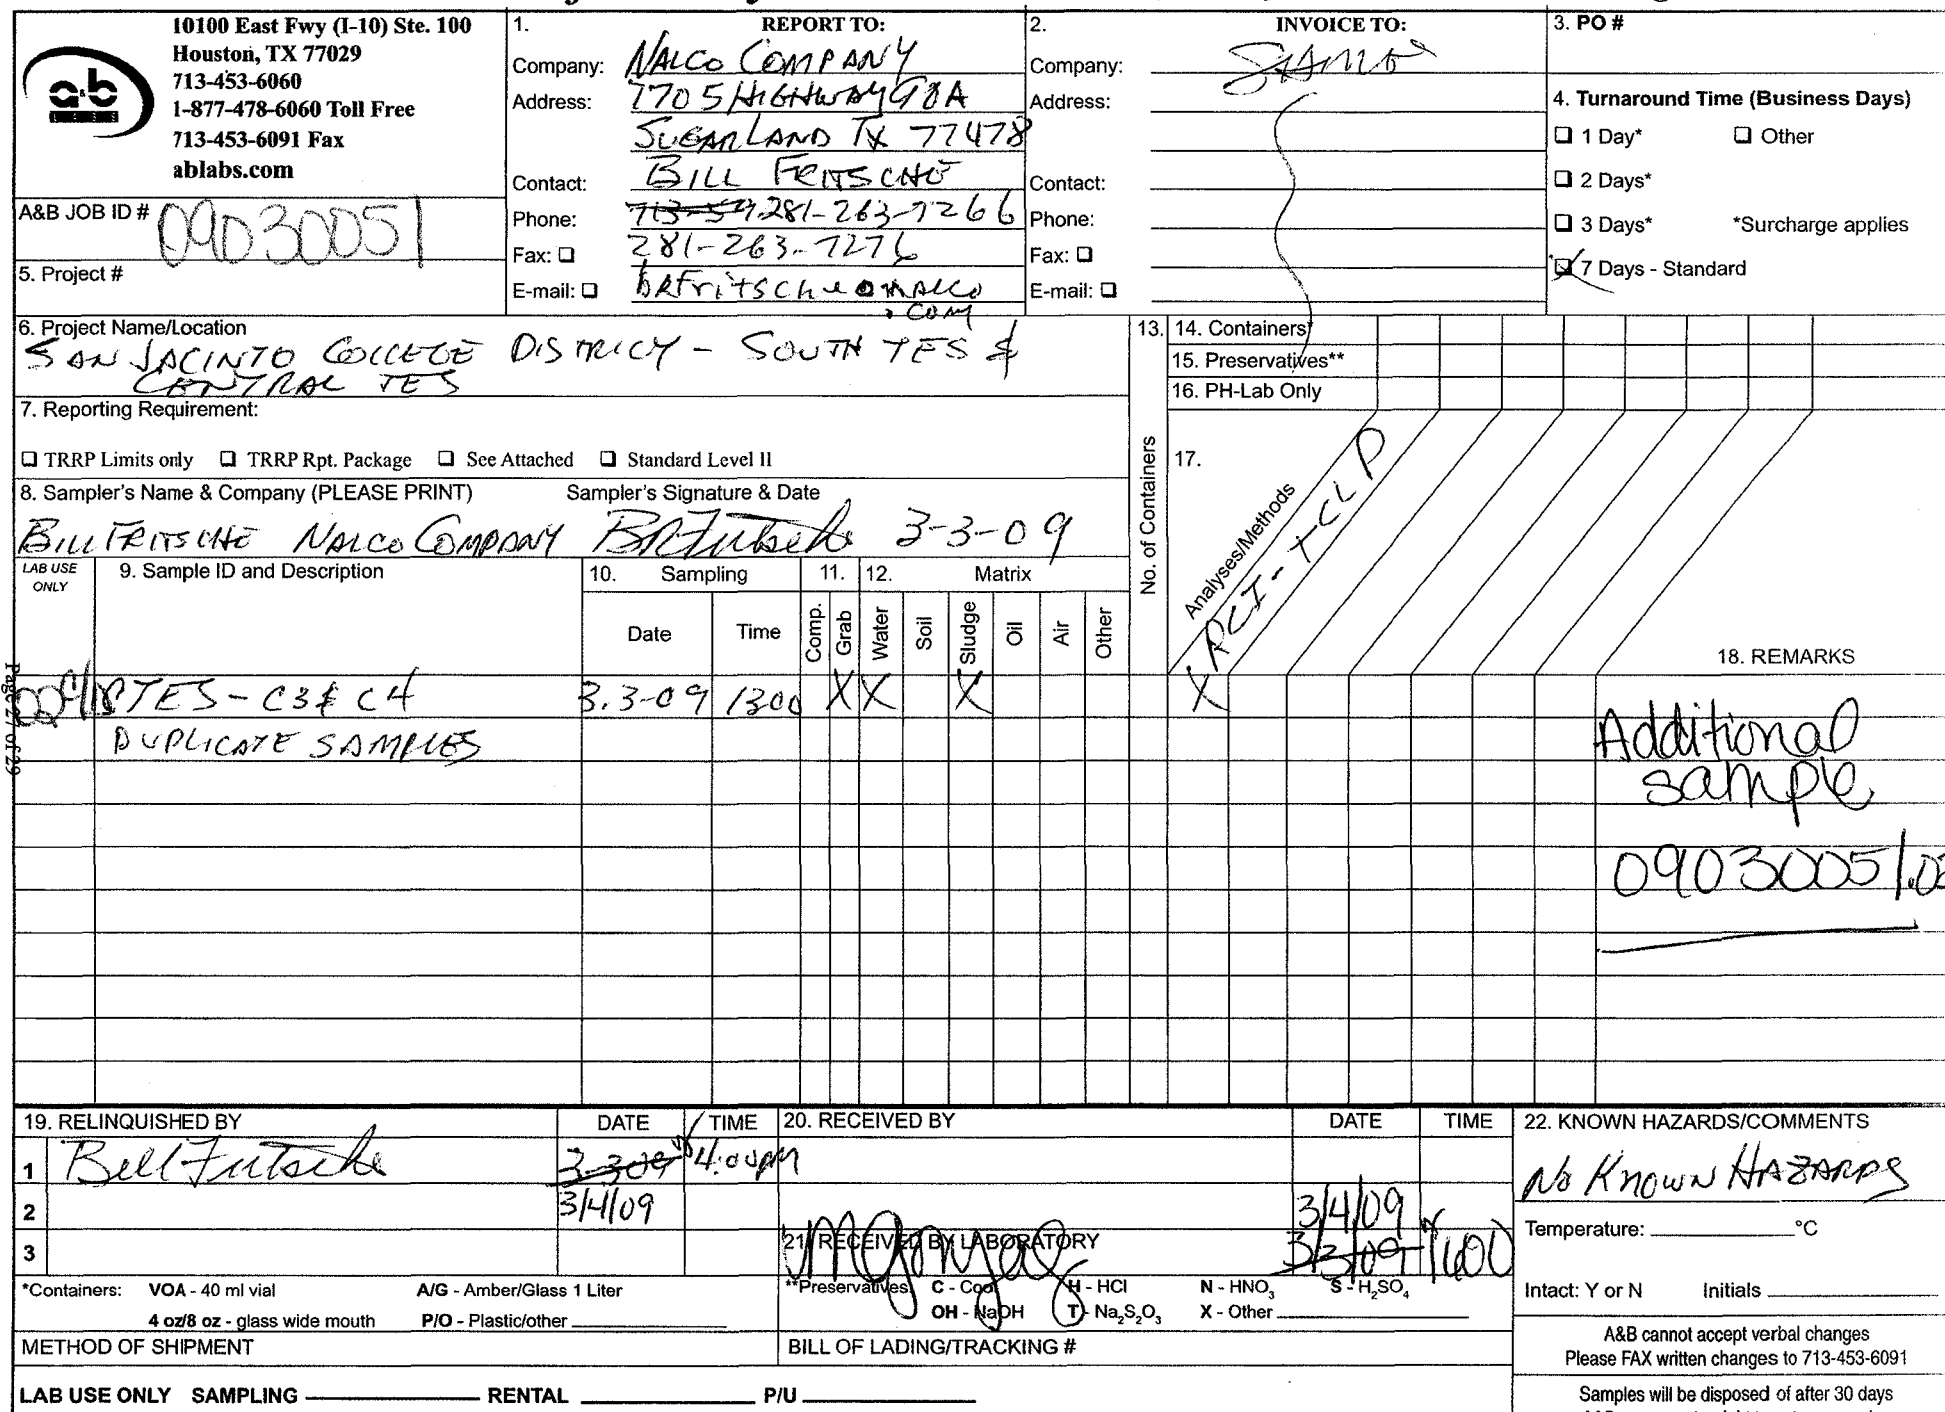 10100 East Fwy (I-10) Ste. 100
Houston, TX 77029
713-453-6060
1-877-478-6060 Toll Free
713-453-6091 Fax
ablabs.com
a&b
LABS
A&B JOB ID # 09030051
5. Project #
1. REPORT TO:
Company: NALCO COMPANY
Address: 7705 HIGHWAY 90A
SUGAR LAND TX 77478
Contact: BILL FRITSCHE
Phone: 281-263-7266
Fax: 281-263-7276
E-mail: brfritsche@nalco
.com
2. INVOICE TO:
Company: SAME
Address:
Contact:
Phone:
Fax:
E-mail:
3. PO #
4. Turnaround Time (Business Days)
1 Day* Other
2 Days*
3 Days* *Surcharge applies
7 Days - Standard
6. Project Name/Location
SAN JACINTO COLLEGE DISTRICT - SOUTH TES &
CENTRAL TES
7. Reporting Requirement:
TRRP Limits only TRRP Rpt. Package See Attached Standard Level II
8. Sampler's Name & Company (PLEASE PRINT) Sampler's Signature & Date
BILL FRITSCHE NALCO COMPANY BRFritsche 3-3-09
13. No. of Containers
14. Containers*
15. Preservatives**
16. PH-Lab Only
17. Analyses/Methods
RCI-TCLP
18. REMARKS
LAB USE
ONLY
9. Sample ID and Description
10. Sampling
Date Time
11. Comp. Grab
12. Matrix
Water Soil Sludge Oil Air Other
TES - C3 & C4 3.3-09 1300 X X X X
DUPLICATE SAMPLES
Additional
sample
09030051.02
Page 27 of 29
19. RELINQUISHED BY DATE TIME
1 Bill Fritsche 3-3-09 4:00pm
2 3/4/09
3
20. RECEIVED BY DATE TIME
3/4/09
21. RECEIVED BY LABORATORY 3/3/09 1600
22. KNOWN HAZARDS/COMMENTS
No KNOWN HAZARDS
Temperature: °C
Intact: Y or N Initials
*Containers: VOA - 40 ml vial A/G - Amber/Glass 1 Liter
4 oz/8 oz - glass wide mouth P/O - Plastic/other
**Preservatives C - Cool H - HCl N - HNO3 S - H2SO4
OH - NaOH T - Na2S2O3 X - Other
METHOD OF SHIPMENT
BILL OF LADING/TRACKING #
A&B cannot accept verbal changes
Please FAX written changes to 713-453-6091
LAB USE ONLY SAMPLING RENTAL P/U
Samples will be disposed of after 30 days